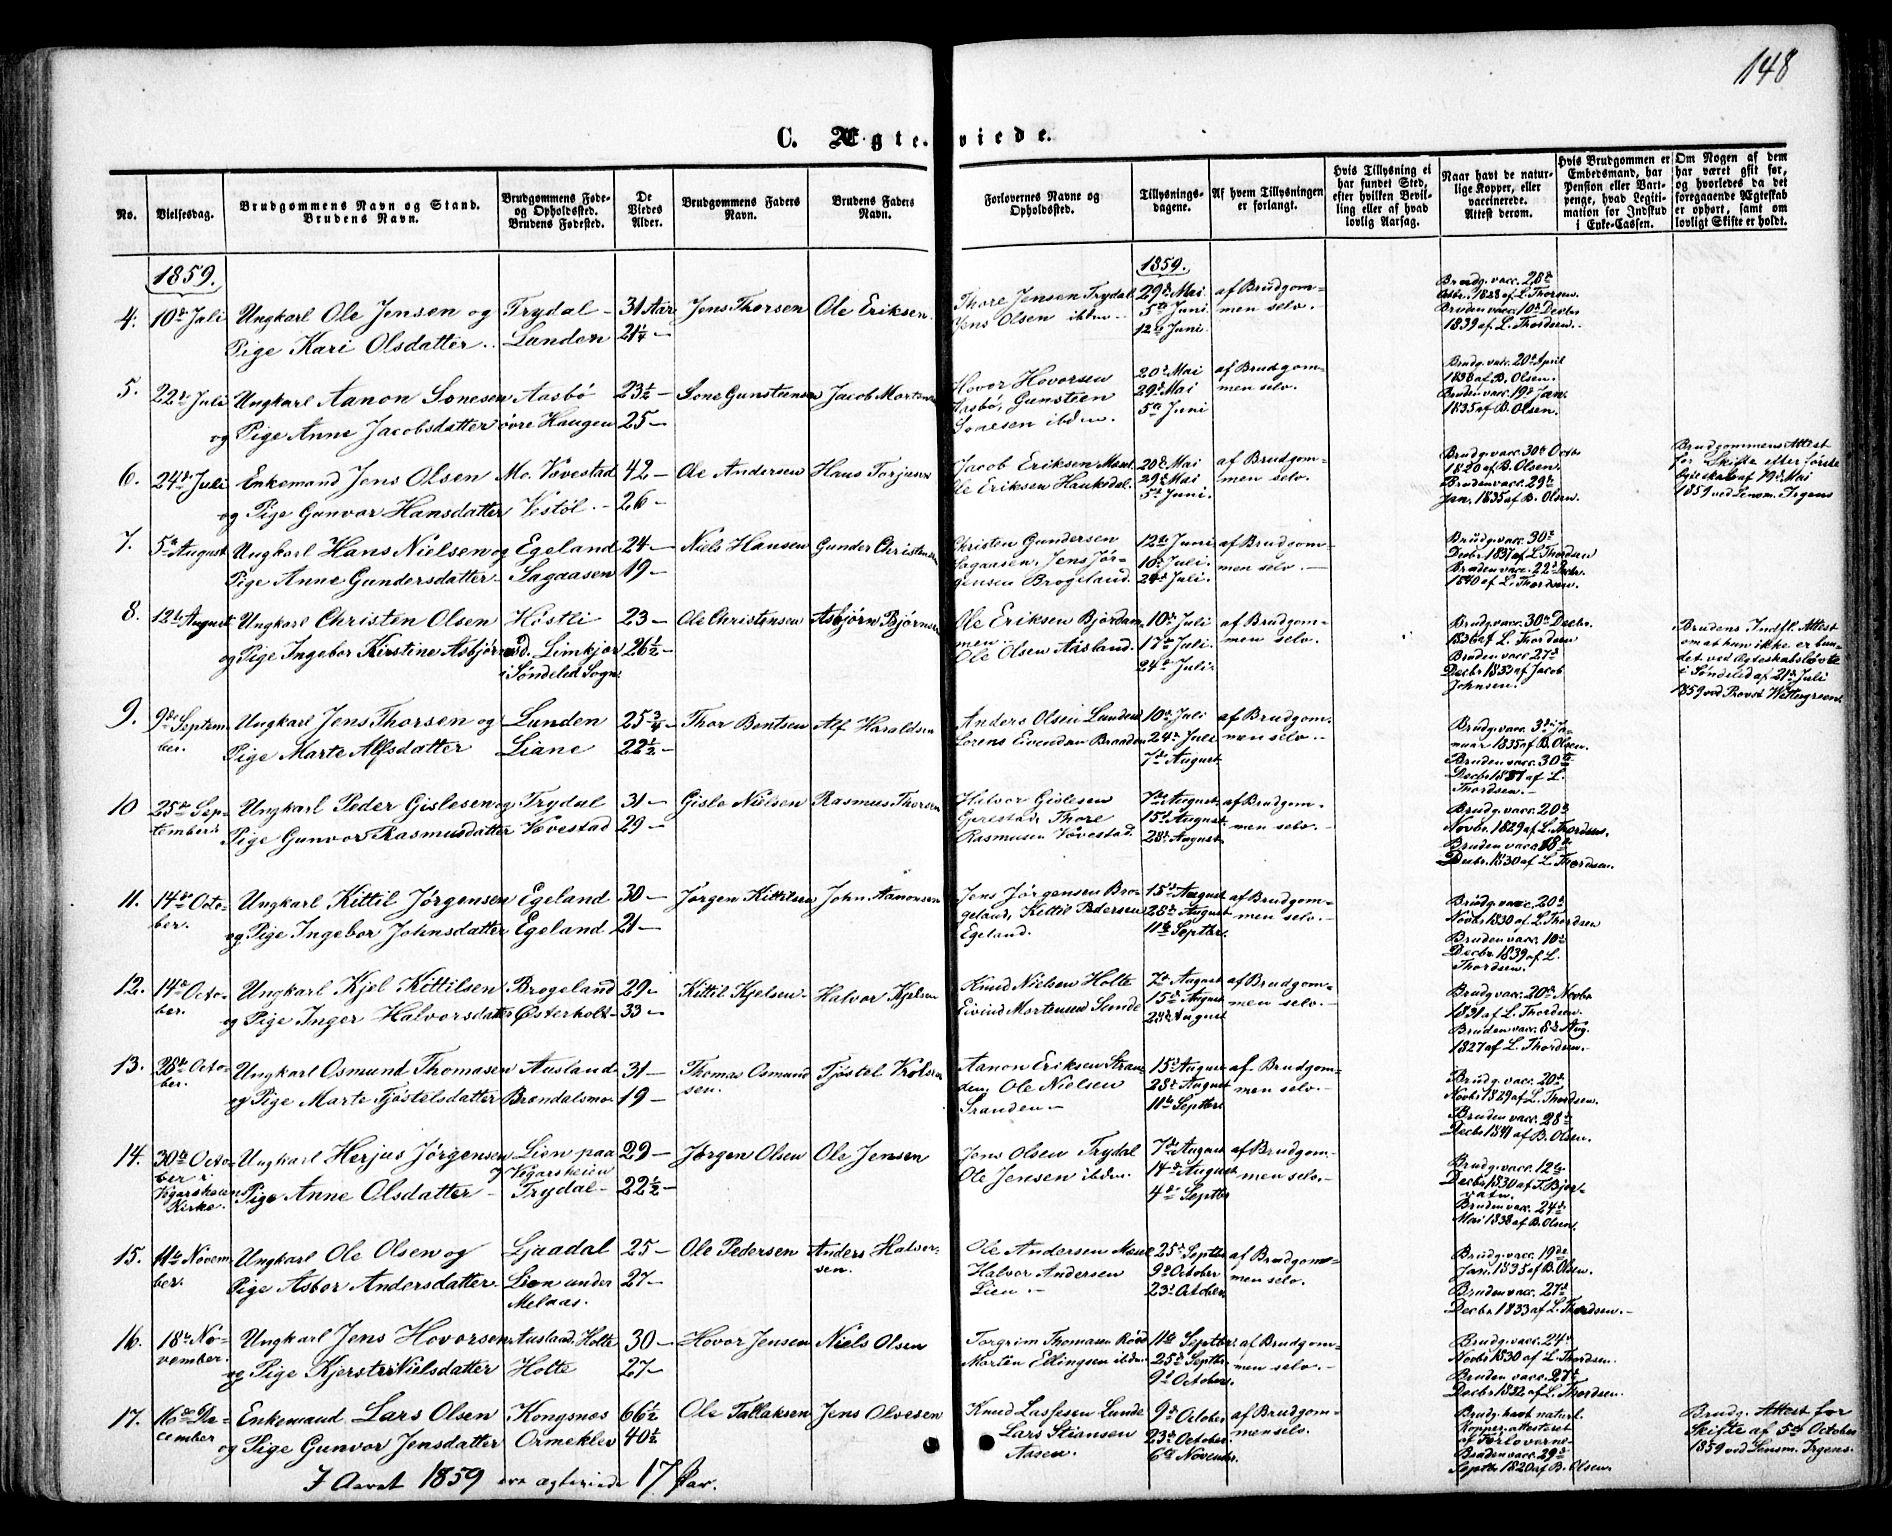 148
C. Ægteviede.
No.
Vielsesdag.
Brudgommens Navn og Stand.
Brudens Navn.
Brudgommens Føde-
og Opholdssted.
Brudens Fødested.
De
Viedes
Alder.
Brudgommens Faders
Navn.
Brudens Faders
Navn.
Forlovernes Navne og
Opholdssted.
Tillysnings-
dagene.
Af hvem Tillysningen
er forlangt.
Hvis Tillysning ei
har fundet Sted,
efter hvilken Bevil-
ling eller af hvad
lovlig Aarsag.
Naar havt de natur-
lige Kopper, eller
vaccinerede.
Attest derom.
Hvis Brudgommen er
Embedsmand, har
Pension eller Vart-
penge, hvad Legiti-
mation for Indskud
i Enke-Cassen.
Om Nogen af dem
har været gift før,
og hvorledes da det
foregaaende Ægteskab
er ophørt, samt om
lovligt Skifte er holdt.
1859.
1859.
4. 10de Juli Ungkarl Ole Jensen og Trydal - 31 Aar Jens Thorsen Ole Eriksen.
Pige Kari Olsdatter. Lunden 21¼ -
Thore Jensen Trydal
Jens Olsen ibdm
29de Mai
5te Juni
12te Juni
af Brudgom-
men selv.
Brudg. vacc. 28de
Octbr. 1828 af L. Thorsen.
Bruden vacc. 10de Decbr
1839 af L. Thordsen.
5. 22de Juli Ungkarl Aanon Sonesen Aasbø 23½ - Sone Gunsteinsen Jacob Mortensen
og Pige Anne Jacobsdatter øvre Haugen 25 -
Hovor Hovorsen
Aasbø, Gunstien
Sonesen ibdm.
20de Mai
29de Mai
5te Juni
af Brudgom-
men selv.
Brudg. vacc. 20de April
1838 af B. Olsen.
Bruden vacc. 19de Jan.
1835 af B. Olsen.
6. 24de Juli Enkemand Jens Olsen Mo. Vævestad 42 - Ole Andersen Hans Torjusen
og Pige Gunvor Hansdatter Vestöl. - 26 -
Jacob Eriksen
Ole Eriksen Hauksdal.
20de Mai
29de Mai
5te Juni.
af Brudgom-
men selv.
Brudg. vacc. 30te Octbr
1820 af B. Olsen.
Bruden vacc. 29de
Jan. 1835 af B. Olsen
Brudgommens Attest
for Skifte efter første
af 19de Mai
1859 ved Lensm. Irgens
7. 5te August Ungkarl Hans Nielsen og Egeland 24 - Niels Hansen Gunder Christensen
Pige Anne Gundersdatter. Sagaasen 19 -
Christen Gundersen
Sagaasen, Jens Jør-
gensen Brogeland.
12te Juni
10de Juli.
24de Juli.
af Brudgom-
men selv. -
Brudg. vacc. 30te
Decbr. 1837 af L. Thordsen
Bruden vacc. 22de Decbr.
1840 af L. Thordsen.
8. 12te August Ungkarl Christen Olsen Höstli 23 - Ole Christensen Asbjørn Bjørnsen
og Pige Ingebor Kirstine Asbjørnsd. Limkjær 26½ -
i Søndeled Sogn.
Ole Eriksen Bjordam-
men.
Ole Olsen Aasland.
10de Juli
17de Juli.
24de Juli.
af Brudgom-
men selv.
Brudg. vacc. 30te Decbr.
1836 af L. Thordsen
Bruden vacc. 27de
Decbr 1833 af Jacob
Johnsen.
Brudens Indfl. Attest
om at hun ikke er bun-
det ved Ægteskabsløvte
i Søndeled af 21de Juli
1859 ved Provst Wettergreen.
9. 9de Septem-
ber.
Ungkarl Jens Thorsen og Lunden 25¾ - Thor Bentsen Alf Haraldsen
Pige Marte Alfsdatter Liane 22½ -
Anders Olsen Lunden
Lorens Evendsen Braaden
10de Juli
24de Juli
7de August
af Brudgom.
men selv. -
Brudg. vacc. 3de Ja-
nuar 1835 af B. Olsen.
Bruden vacc. 30te
Decbr. 1837 af L.
Thordsen. -
10 25de Sep-
tember.
Ungkarl Peder Gislesen og Trydal 31 - Gisle Nielsen Rasmus Thorsen
Pige Gunvor Rasmusdatter Vævestad 29 -
Halvor Gislesen
Gjerestad, Thore
Rasmusen Vævestad.
7de August
15de August
28de August.
af Brudgom-
men selv. -
Brudg. vacc. 20de
Novbr. 1829 af L. Thordsen.
Bruden vacc. 18de
Decbr. 1830 af L. Thordsen.
11. 14de Octo-
ber.
Ungkarl Kittil Jørgensen Egeland 30 - Jørgen Kittilsen John Aanonsen
og Pige Ingebor Johnsdatter Egeland. 21 -
Jens Jørgensen Bro-
geland, Kettil Pedersen
Egeland.
15de August
28de August
11te Septbr.
af Brudgom-
men selv. -
Brudg. vacc. 20de
Novbr 1830 af L. Thordsen
Bruden vacc. 10de
Decbr. 1839 af L.
Thordsen.
12. 14de Octo-
ber.
Ungkarl Kjel Kittilsen Brogeland 29 - Kittil Kjelsen Halvor Kjelsen
og Pige Inger Halvorsdatter Østerholt 33 -
Knud Nielsen Holte
Eivind Mortensen Sunde
7de August
15de August
28de August
af Brudgom-
men selv. -
Brudg. vacc. 20de Novbr
1831 af L. Thordsen.
Bruden vacc. 8de Aug.
1827 af L. Thordsen.
13. 28de Octo-
ber.
Ungkarl Osmund Thomasen Ausland 31 - Thomas Osmund-
sen.
Tjøstel Krolsen
og Pige Marte Tjöstelsdatter Brændalsmo 19 -
Aanon Eriksen Stran-
den, Ole Nielsen
Stranden -
15de August
28de August
11te Septbr.
af Brudgom-
men selv. -
Brudg. vacc. 20de
Novbr 1829 af L. Thordsen.
Bruden vacc. 28de
Decbr 1841 af B. Olsen.
14. 30te Octo-
ber i
Vegarsheien
Kirke.
Ungkarl Herjus Jørgensen Lien paa 29 - Jørgen Olsen Ole Jensen
Vegarsheien
Pige Anne Olsdatter - Trydal - 22½ -
Jens Olsen Trydal
Ole Jensen ibdm.
7de August
14de August
4de Septbr
af Brudgom-
men selv. -
Brudg. vacc. 12te
Decbr. 1830 af T. Bjor-
vatn.
Bruden vacc. 24de
Mai 1838 af B. Olsen.
15. 11te Novem-
ber.
Ungkarl Ole Olsen og Ljaadal 25 - Ole Pedersen Anders Halvor-
sen.
Pige Asbor Andersdatter. Lien under 27 -
Melaas.
Ole Andersen Moe
Halvor Andersen
Lien. -
25de Septbr
9de October
23de October
af Brudgom-
men selv.
Brudg. vacc. 19de
Jan. 1835 af B. Olsen.
Bruden vacc. 27de
Decbr. 1833 af L. Thordsen. -
16. 18de No-
vember.
Ungkarl Jens Hovorsen Ausland, Holte 30 - Hovor Jensen Niels Olsen
og Pige Kjersti Nielsdatter Holte 27 -
Torgrim Thomasen Røed
Martin Ellingsen ibdm.
11te Septbr.
25de Septbr.
9de October.
af Brudgom-
men selv. -
Brudg. vacc. 24de
Novbr 1830 af L. Thordsen.
Bruden vacc. 27de
Decbr 1832 af L. Thordsen.
17. 16de De-
cember
Enkemand Lars Olsen Kongsnes 66½ Ole Tallaksen Jens Olvesen
og Pige Gunvor Jensdatter Ormeklev 40½
Knud Lassesen Lunde
Lars Stiansen
Aasen.
9de October
23de October.
6te Novembr.
af Brudgom-
men selv.
Brudg. havt naturl.
Kopper, attesteret
af Forloverne.
Bruden vacc. 29de
Septbr 1820 af B. Olsen.
Brudg. Attest for
Skifte af 5te October
1859 ved Lensm. Irgens.
I Aaret 1859 ere ægteviede 17 Par.